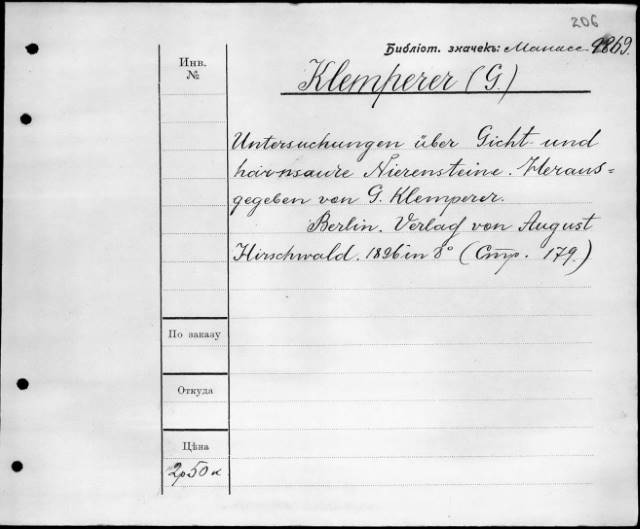 206
Библіот. значекъ: Манасс. 9869.
Инв.
№
Klemperer (G.)
Untersuchungen über Gicht und
harnsaure Nierensteine. Heraus=
gegeben von G. Klemperer.
Berlin. Verlag von August
Hirschwald. 1896 in 8° (Стр. 179.)
По заказу
Откуда
Цѣна
2р50к.